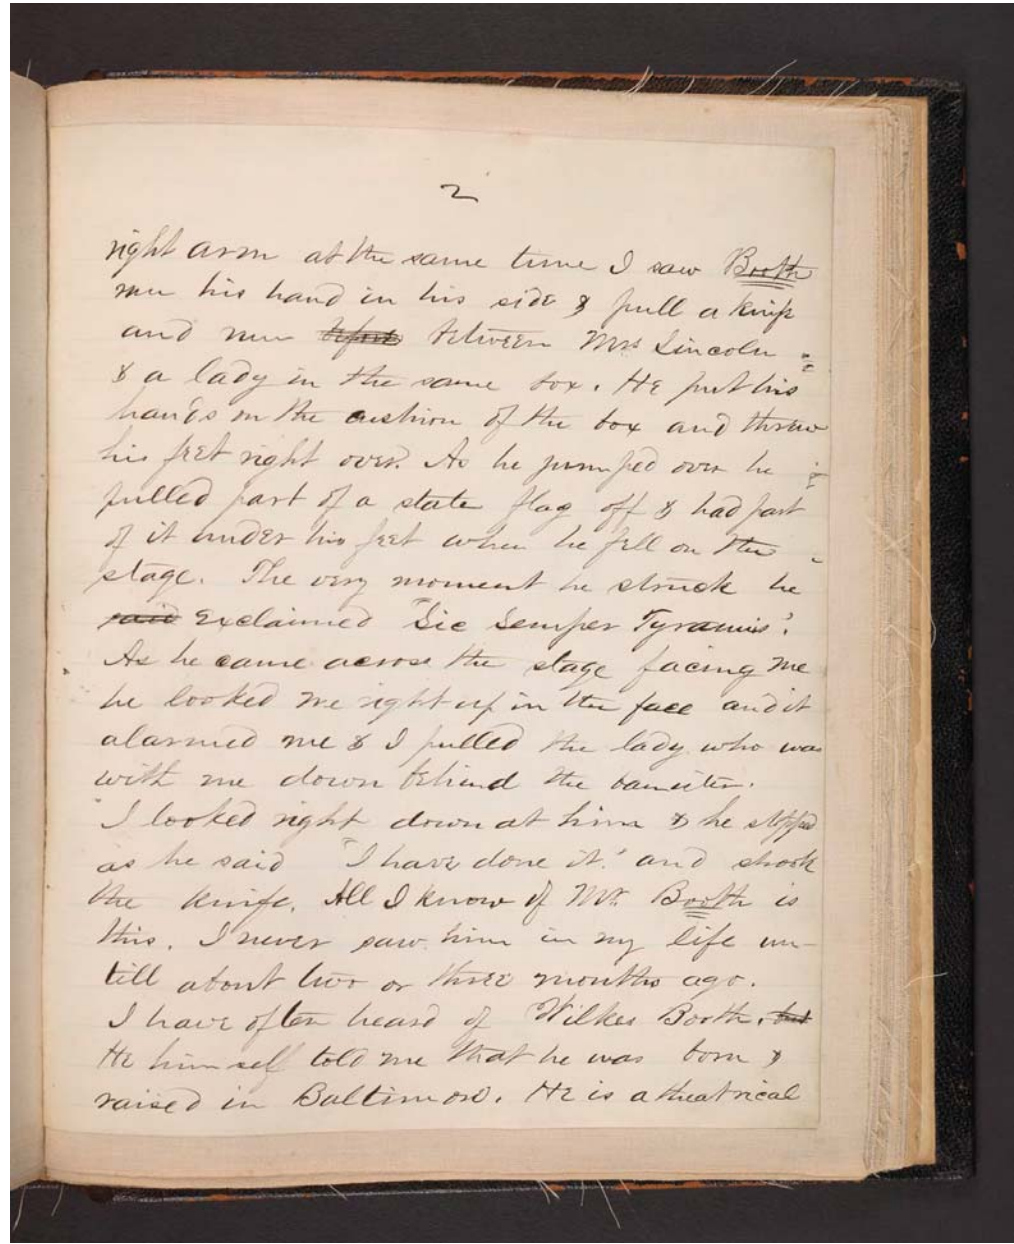 2
right arm at the same time I saw Booth
run his hand in his side & pull a knife
and run before between Mrs Lincoln
& a lady in the same box. He put his
hands on the cushion of the box and threw
his feet right over. As he jumped over he
pulled part of a state flag off & had part
of it under his feet when he fell on the
stage. The very moment he struck he
said exclaimed "Sic Semper Tyrannis".
As he came across the stage facing me
he looked me right up in the face and it
alarmed me & I pulled the lady who was
with me down behind the banister.
I looked right down at him & he stopped
as he said "I have done it" and shook
the knife. All I know of Mr. Booth is
this. I never saw him in my life un-
till about two or three months ago.
I have often heard of Wilkes Booth, but
He himself told me that he was born &
raised in Baltimore. He is a theatrical